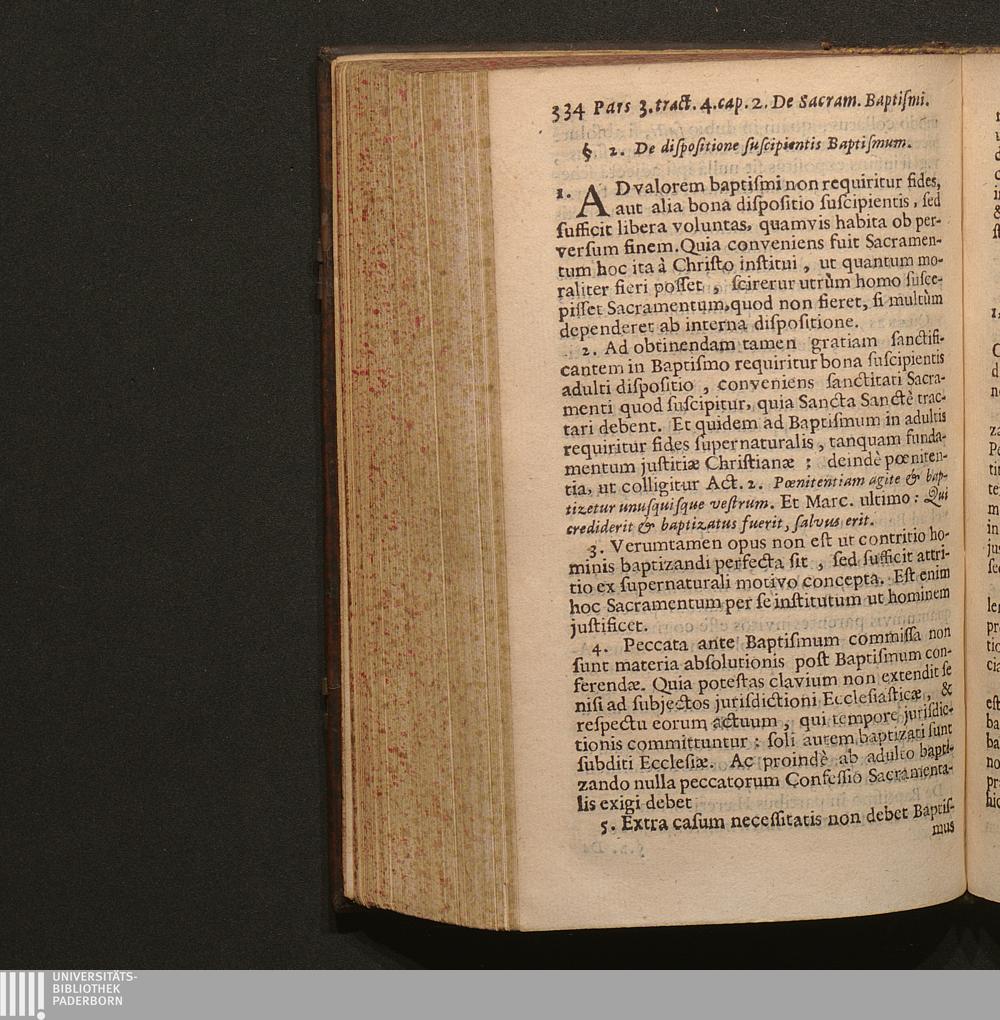 334 Pars 3. tract. 4. cap. 2. De Sacram. Baptiſmi.
§ 2. De diſpoſitione ſuſcipientis Baptiſmum.
1. AD valorem baptiſmi non requiritur fides,
aut alia bona diſpoſitio ſuſcipientis, ſed
ſufficit libera voluntas, quamvis habita ob per-
verſum finem. Quia conveniens fuit Sacramen-
tum hoc ita à Chriſto inſtitui, ut quantum mo-
raliter fieri poſſet, ſcirerur utrùm homo ſuſce-
piſſet Sacramentum, quod non fieret, ſi multùm
dependeret ab interna diſpoſitione.
2. Ad obtinendam tamen gratiam ſanctifi-
cantem in Baptiſmo requiritur bona ſuſcipientis
adulti diſpoſitio, conveniens ſanctitati Sacra-
menti quod ſuſcipitur, quia Sancta Sanctè trac-
tari debent. Et quidem ad Baptiſmum in adultis
requiritur fides ſupernaturalis, tanquam funda-
mentum juſtitiæ Chriſtianæ; deindè pœniten-
tia, ut colligitur Act. 2. Pœnitentiam agite & bap-
tizetur unuſquiſque veſtrum. Et Marc. ultimo: Qui
crediderit & baptizatus fuerit, ſalvus erit.
3. Verumtamen opus non eſt ut contritio ho-
minis baptizandi perfecta ſit, ſed ſufficit attri-
tio ex ſupernaturali motivo concepta. Eſt enim
hoc Sacramentum per ſe inſtitutum ut hominem
juſtificet.
4. Peccata ante Baptiſmum commiſſa non
ſunt materia abſolutionis poſt Baptiſmum con-
ferendæ. Quia poteſtas clavium non extendit ſe
niſi ad ſubjectos jurisdictioni Eccleſiaſticæ, &
reſpectu eorum actuum, qui tempore jurisdic-
tionis committuntur: ſoli autem baptizati ſunt
ſubditi Eccleſiæ. Ac proindè ab adulto bapti-
zando nulla peccatorum Confeſſio Sacramenta-
lis exigi debet
5. Extra caſum neceſſitatis non debet Baptiſ-
mus
UNIVERSITÄTS-
BIBLIOTHEK
PADERBORN